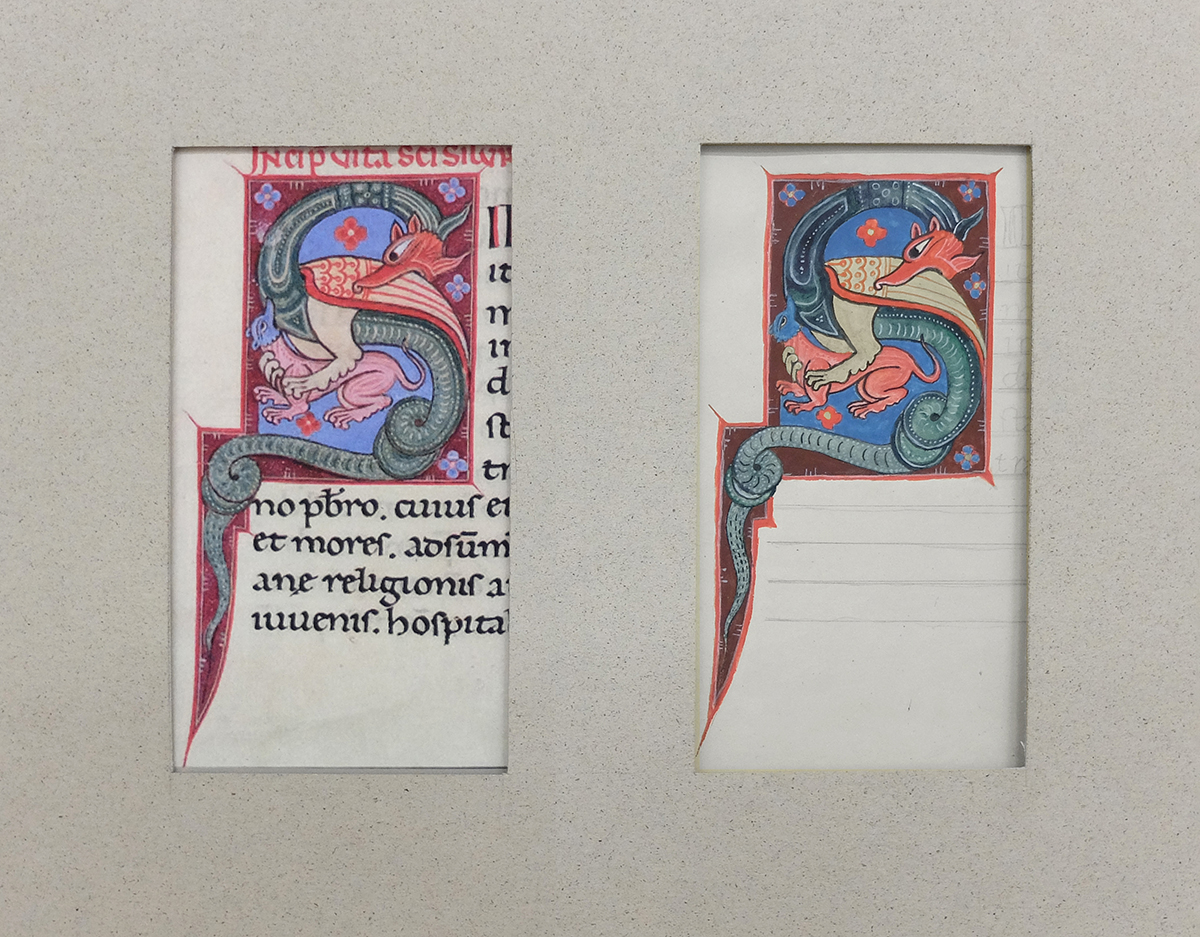 Incip vita sci
it
m
in
d
st
tr
no pb̄ro. cuius et
et mores. adsūm
anę religionis a
iuuenis. hospita